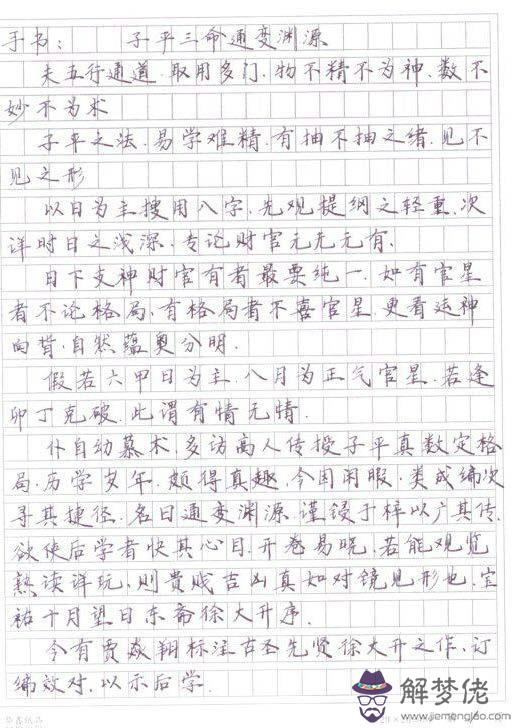 手书： 子平三命通变渊源
夫五行通道.取用多门.物不精不为神.数不
妙不为术
子平之法.易学难精.有抽不抽之绪.见不
见之形
以日为主搜用八字.先观提纲之轻重.次
详时日之浅深.专论财官元无元有.
日下支神财官有者最要纯一.如有官星
者不论格局.有格局者不喜官星.更看运神
向背.自然蕴奥分明.
假若六甲日为主.八月为正气官星.若逢
卯丁克破.此谓有情无情.
仆自幼慕术.多访高人传授子平真数定格
局.历学岁年.颇得真趣.今因闲暇.类成编次
寻其捷径.名曰通变渊源.谨锓于梓以广其传.
欲使后学者快其心目.开卷易晓.若能观览
熟读详玩.则贵贱吉凶真如对镜见形也.宝
祐十月望日东斋徐大升序.
今有贾焱翔标注古圣先贤徐大升之作.订
编效对.以示后学.
华鑫纸品
解梦佬
www.jiemeng8.com